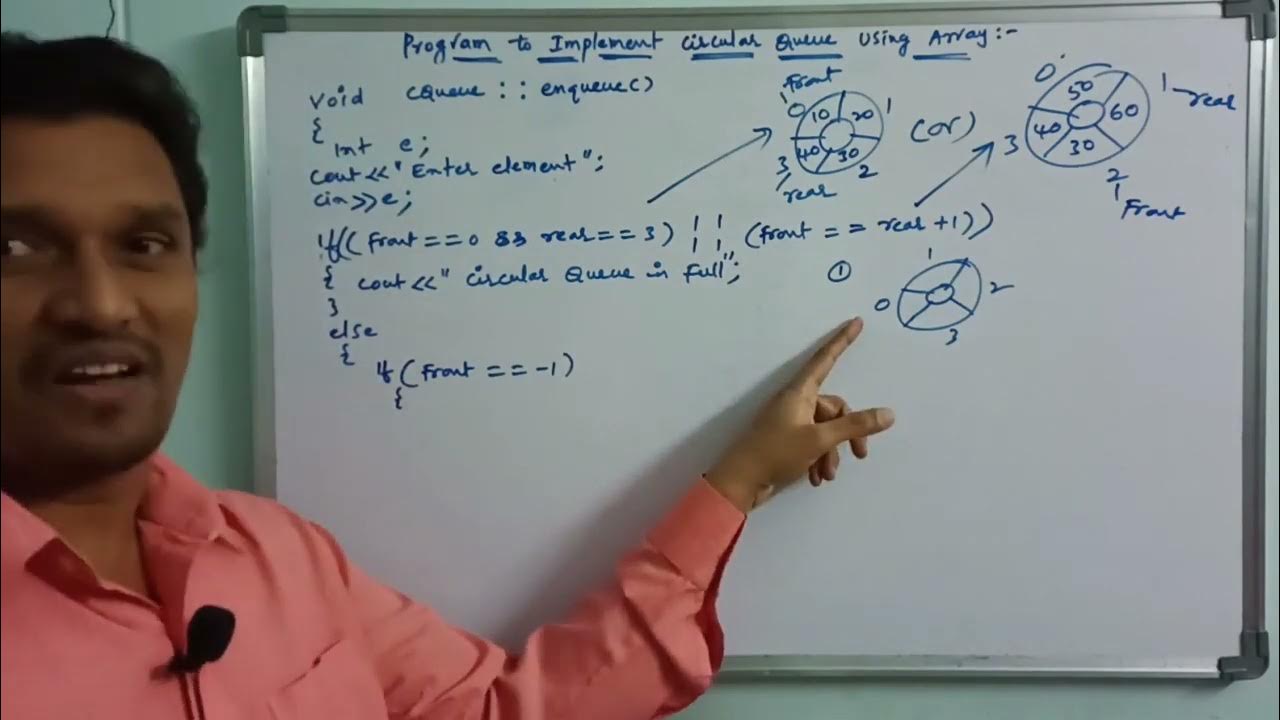 Program to Implement Circular Queue Using Array:-
void cqueue :: enqueue()
{
int e;
cout<<"Enter element";
cin>>e;
if((front==0 && rear==3) || (front==rear+1))
{ cout<<"Circular Queue is full";
}
else
{
if(front==-1)
{
front
0 10 20 1
40 30
3 2
rear
(or)
0
50 1 rear
40 60
3 30
2
front
①
1
0 2
3